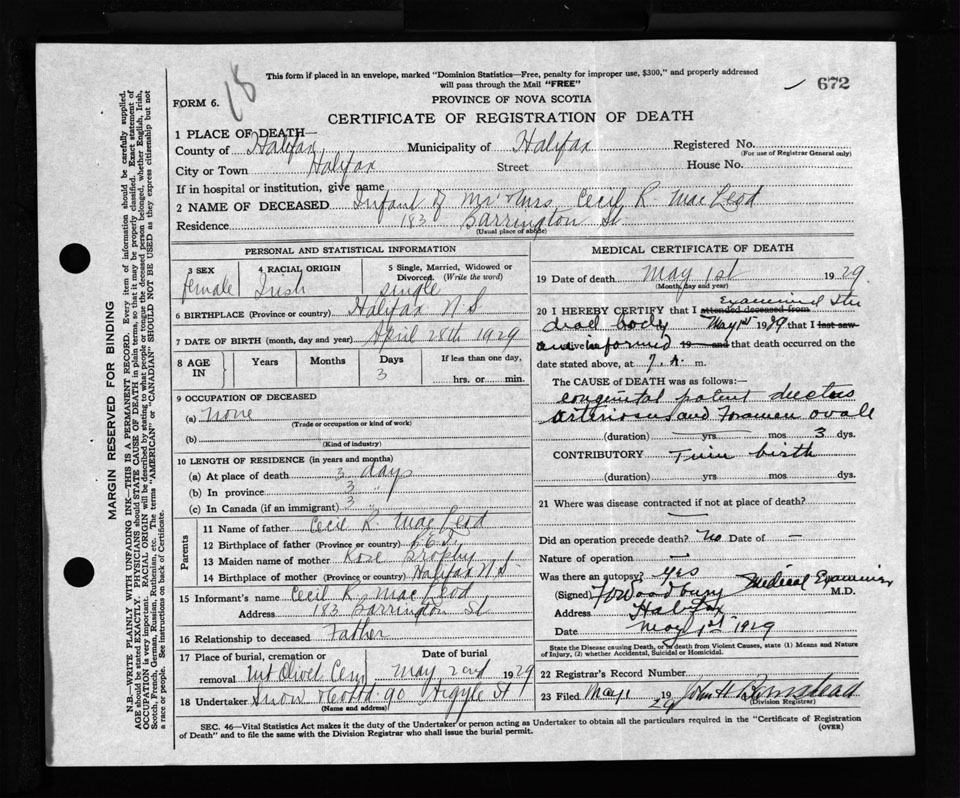 18
This form if placed in an envelope, marked "Dominion Statistics—Free, penalty for improper use, $300," and properly addressed
will pass through the Mail "FREE"
672
FORM 6.
PROVINCE OF NOVA SCOTIA
CERTIFICATE OF REGISTRATION OF DEATH
1 PLACE OF DEATH—
County of Halifax Municipality of Halifax Registered No.
(For use of Registrar General only)
City or Town Halifax Street House No.
If in hospital or institution, give name
2 NAME OF DECEASED Infant of Mr & Mrs Cecil R. MacLeod
Residence 183 Barrington St
(Usual place of abode)
PERSONAL AND STATISTICAL INFORMATION
3 SEX 4 RACIAL ORIGIN 5 Single, Married, Widowed or
Divorced. (Write the word)
female Irish single
6 BIRTHPLACE (Province or country) Halifax N S
7 DATE OF BIRTH (month, day and year) April 28th 1929
8 AGE IN Years Months Days If less than one day,
3 hrs. or min.
9 OCCUPATION OF DECEASED
(a) none
(Trade or occupation or kind of work)
(b)
(Kind of industry)
10 LENGTH OF RESIDENCE (in years and months)
(a) At place of death 3 days
(b) In province 3 "
(c) In Canada (if an immigrant) 3 "
Parents
11 Name of father Cecil R. MacLeod
12 Birthplace of father (Province or country) P.E.I.
13 Maiden name of mother Rose Brophy
14 Birthplace of mother (Province or country) Halifax N S
15 Informant's name Cecil R. MacLeod
Address 183 Barrington St
16 Relationship to deceased Father
17 Place of burial, cremation or Date of burial
removal Mt Olivet Cem May 2nd 1929
18 Undertaker Snow & Co Ltd 90 Argyle St
(Name and address)
MEDICAL CERTIFICATE OF DEATH
19 Date of death May 1st 1929
(Month, day and year)
20 I HEREBY CERTIFY that I attended deceased from Examined the
dead body May 1st 1929 that I last saw
and informed 19 and that death occurred on the
date stated above, at 7. A. m.
The CAUSE OF DEATH was as follows:—
congenital patent ductus
arteriosus and Foramen ovale
(duration) yrs mos 3 dys.
CONTRIBUTORY Twin birth
(duration) yrs. mos. dys.
21 Where was disease contracted if not at place of death?
—
Did an operation precede death? No Date of —
Nature of operation —
Was there an autopsy? Yes
(Signed) Woodbury Medical Examiner
M.D.
Address Halifax
Date May 1st 1929
State the Disease causing Death, or in death from Violent Causes, state (1) Means and Nature
of Injury, (2) whether Accidental, Suicidal or Homicidal.
22 Registrar's Record Number
23 Filed May 1 1929 John H Barnstead
(Division Registrar)
SEC. 46—Vital Statistics Act makes it the duty of the Undertaker or person acting as Undertaker to obtain all the particulars required in the "Certificate of Registration
of Death" and to file the same with the Division Registrar who shall issue the burial permit. (OVER)
MARGIN RESERVED FOR BINDING
N.B.—WRITE PLAINLY WITH UNFADING INK—THIS IS A PERMANENT RECORD. Every item of information should be carefully supplied.
AGE should be stated EXACTLY. PHYSICIANS should STATE CAUSE OF DEATH in plain terms, so that it may be properly classified. Exact statement of
OCCUPATION is very important. RACIAL ORIGIN will be described by stating to what people or tongue the deceased person belonged, whether English, Irish,
Scotch, French, German, Russian, Ruthenian, etc. The terms "AMERICAN" or "CANADIAN" SHOULD NOT BE USED as they express citizenship but not
a race or people. See instructions on back of Certificate.